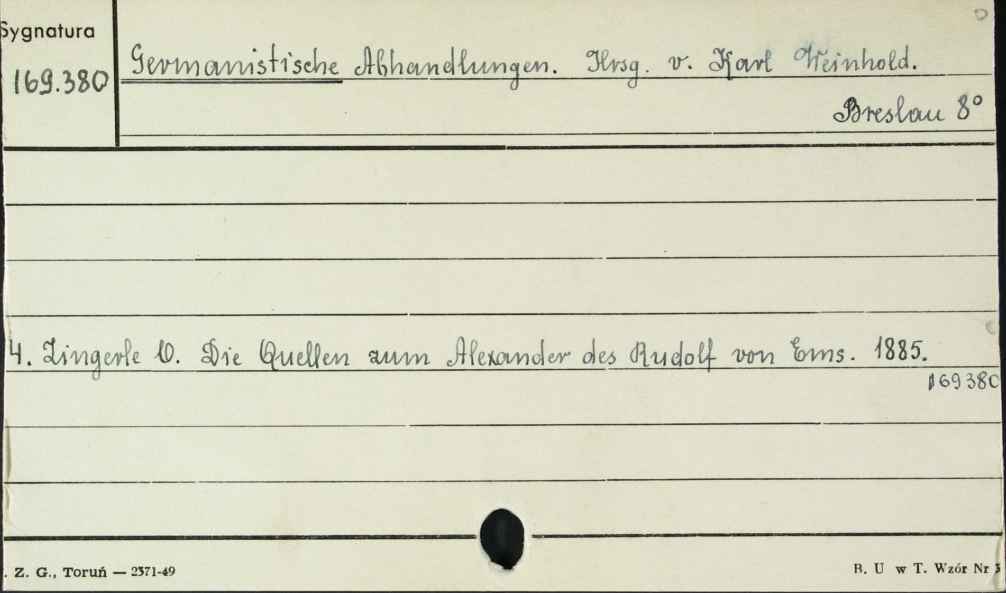 Sygnatura
169.380
Germanistische Abhandlungen. Hrsg. v. Karl Weinhold.
Breslau 8°
4. Zingerle O. Die Quellen zum Alexander des Rudolf von Ems. 1885.
169380
. Z. G., Toruń — 2371-49
B. U w T. Wzór Nr 3